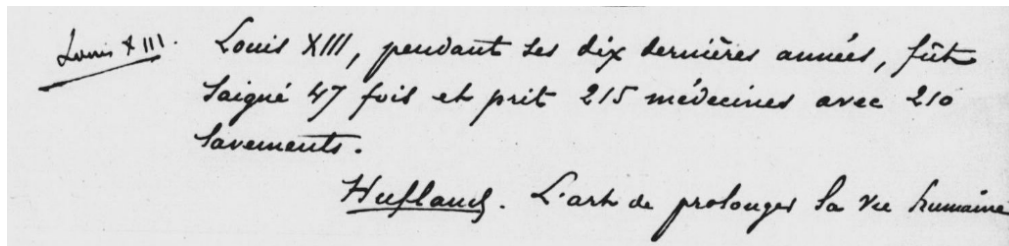 Louis XIII. Louis XIII, pendant ses dix dernières années, fût
saigné 47 fois et prit 215 médecines avec 210
lavements.
Hufland. L'art de prolonger la vie humaine